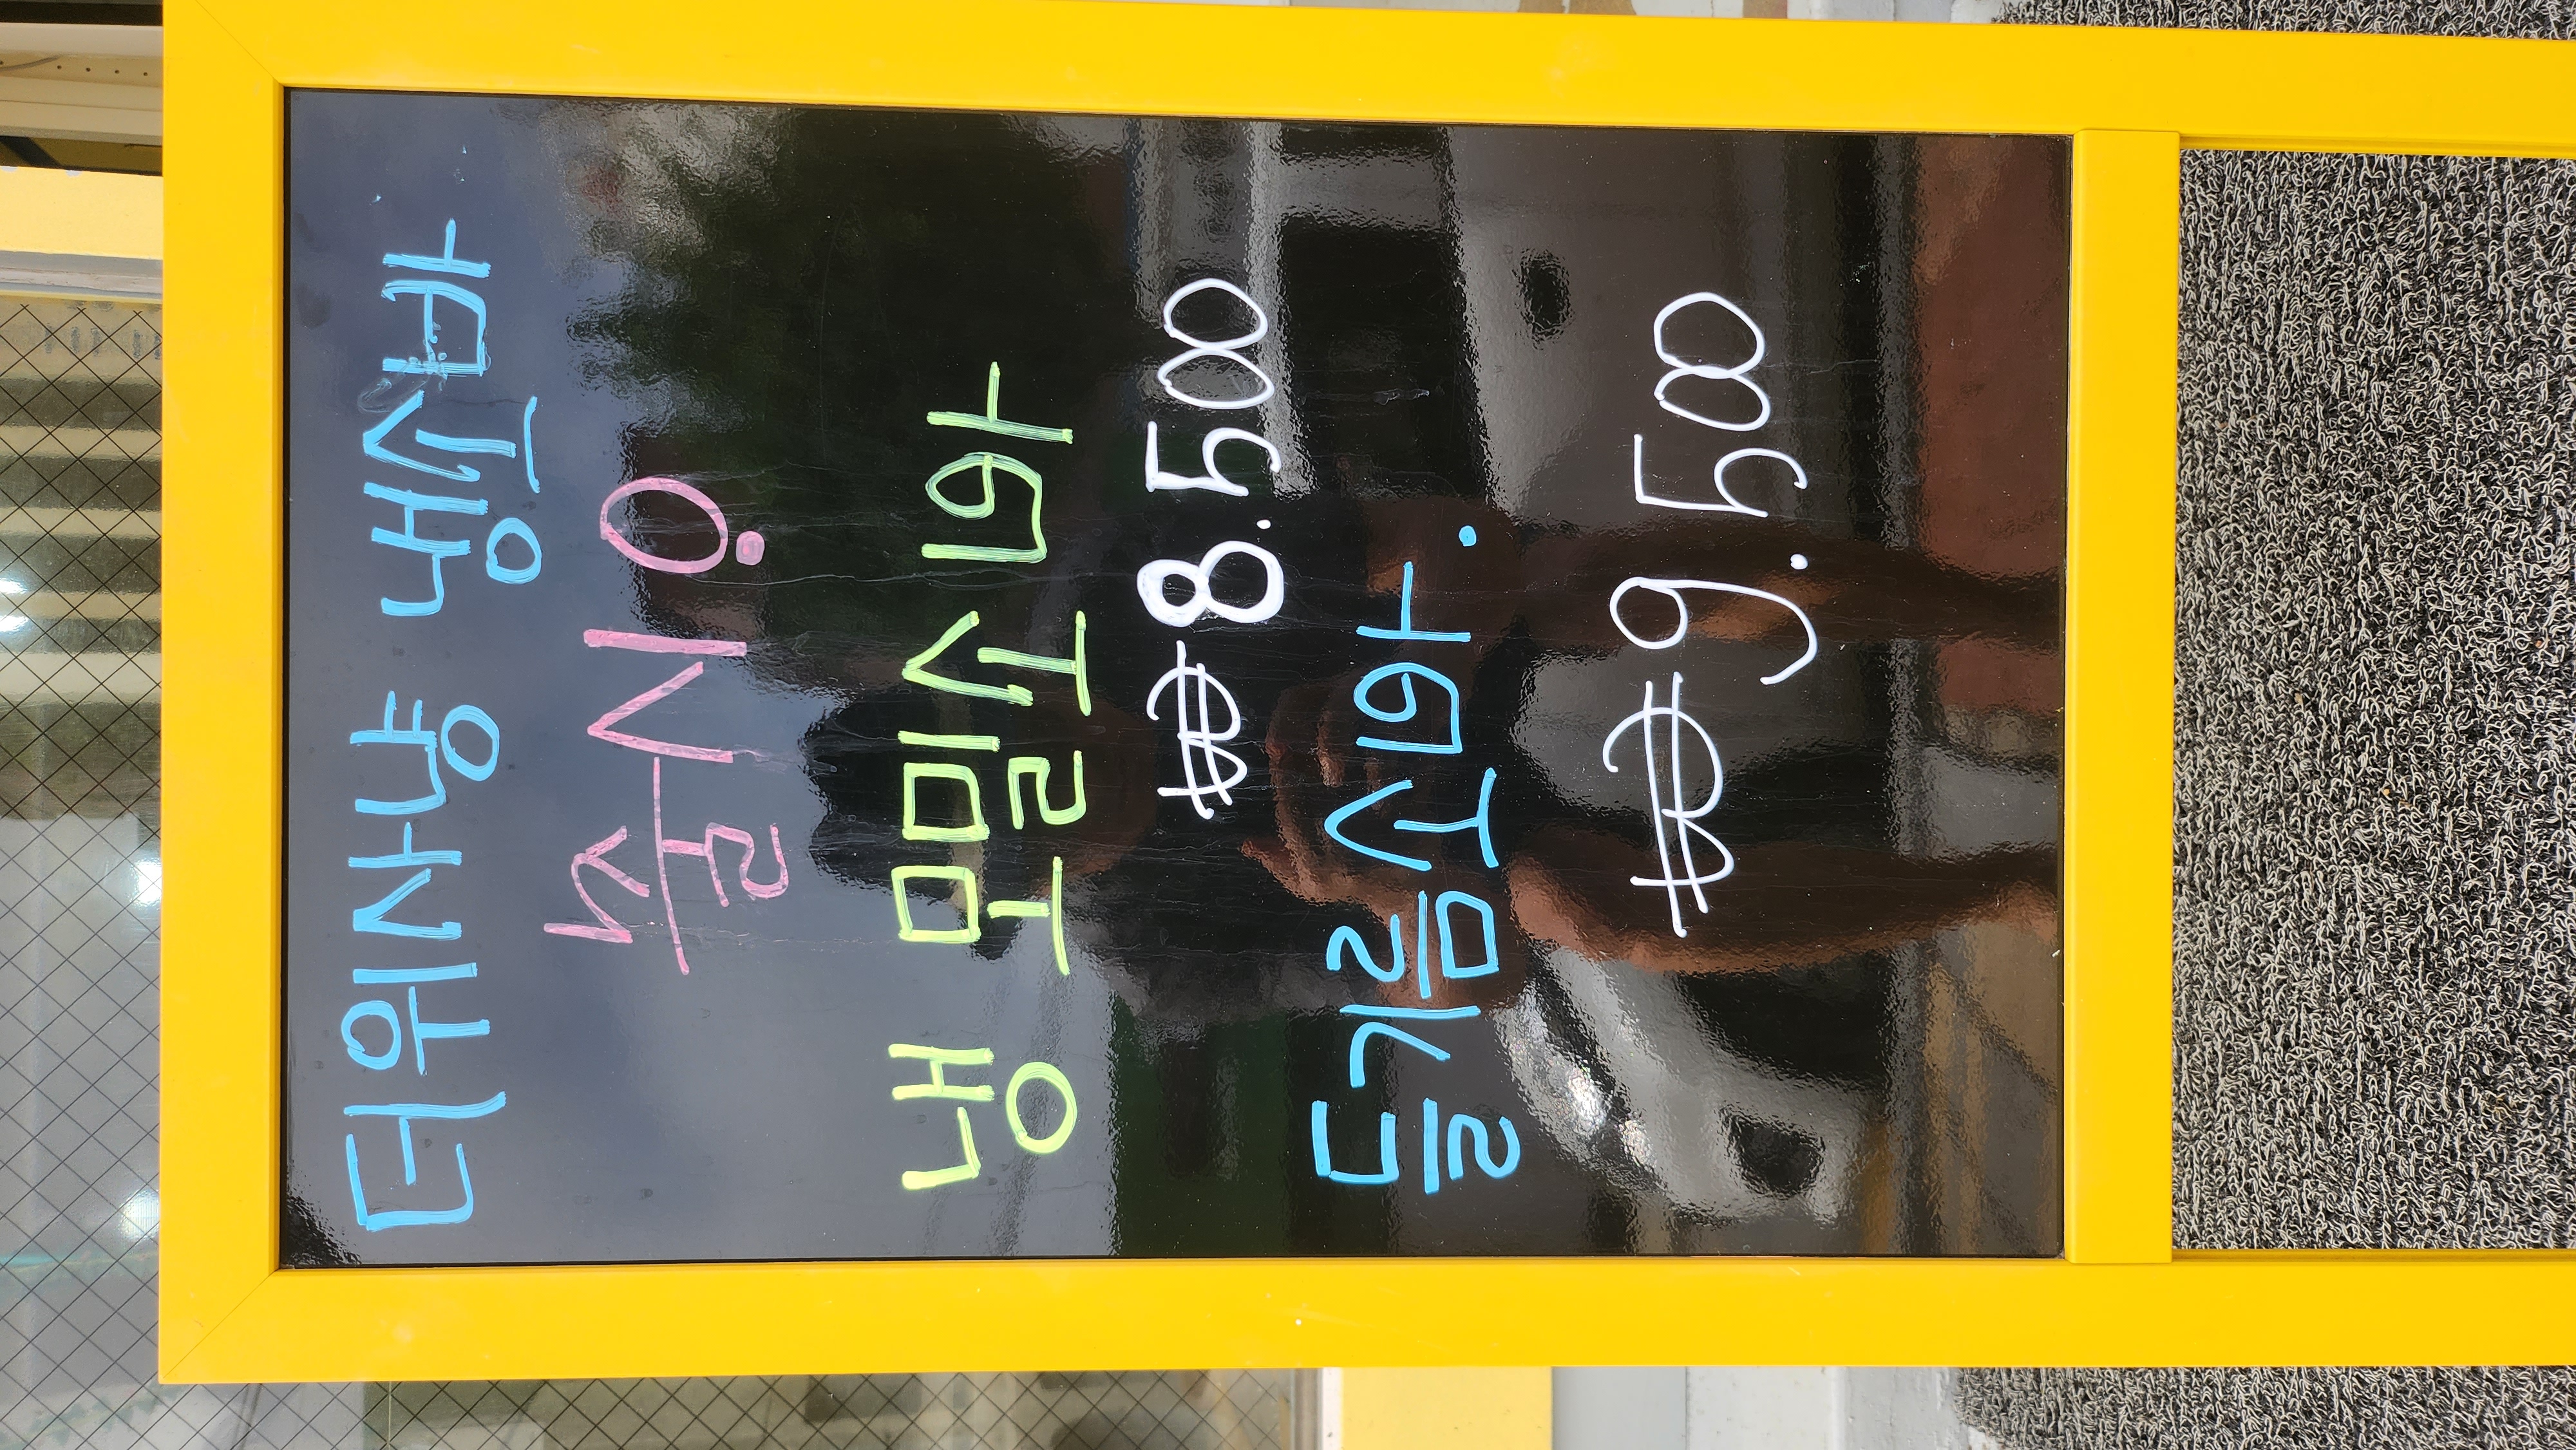 더위사냥 냉소바
출시!
냉 모밀소바
₩8.500
들기름소바.
₩9.500